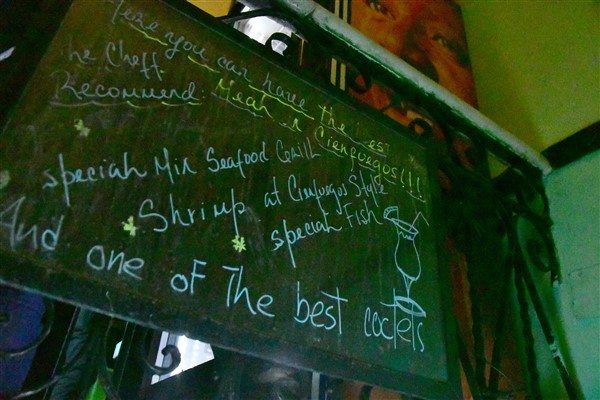 Here you can have the best
Mear in Cienfuegos!!!
The Cheff
Recommend:
speciah Mix Seafood Grill
Shrimp at Cienfuegos Style
speciah Fish
And one of The best coctels